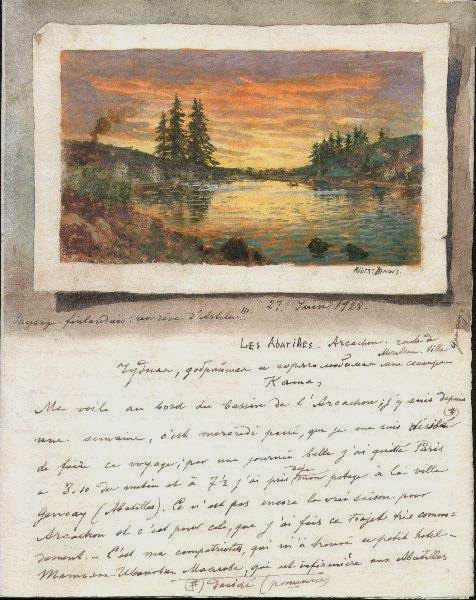 Albert Benois.
Paysage finlandais: un rêve d'artiste!!!
27. Juin 1928.
Les Abatilles. Arcachon. route de
Moulleau. Villa
Чудная, добрѣйшая и горячо любимая моя сестра
Катя,
Me voilà au bord du bassin de l'Arcachon; j'y suis depuis
une semaine, c'est mercredi passé, que je me suis décidé (*)
de faire ce voyage; par une journée belle j'ai quitté Paris
à 8.10 du matin et à 7½ j'ai pris déjà mon potage à la villa
(Abatilles). Ce n'est pas encore la vraie saison pour
Arcachon et c'est pour cela, que j'ai fais ce trajet très commo-
dement. – C'est ma compatriote, qui m'a trouvé ce petit hotel –
Ивановна Маслова, qui est infirmière aux Abatilles
(*) décidé